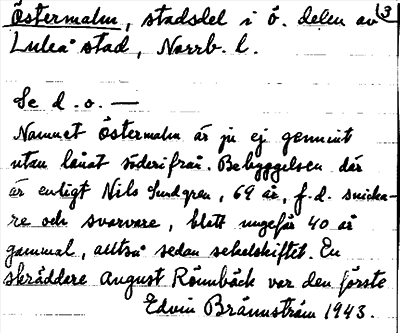 Östermalm, stadsdel i ö. delen av 3
Luleå stad, Norrb. l.
Se d. o. —
Namnet Östermalm är ju ej genuint
utan lånat söderifrån. Bebyggelsen där
är enligt Nils Sundgren, 69 år, f.d. snicka-
re och svarvare, blott ungefär 40 år
gammal, alltså sedan sekelskiftet. En
skräddare August Rönnbäck var den förste
Edvin Brännström 1943.